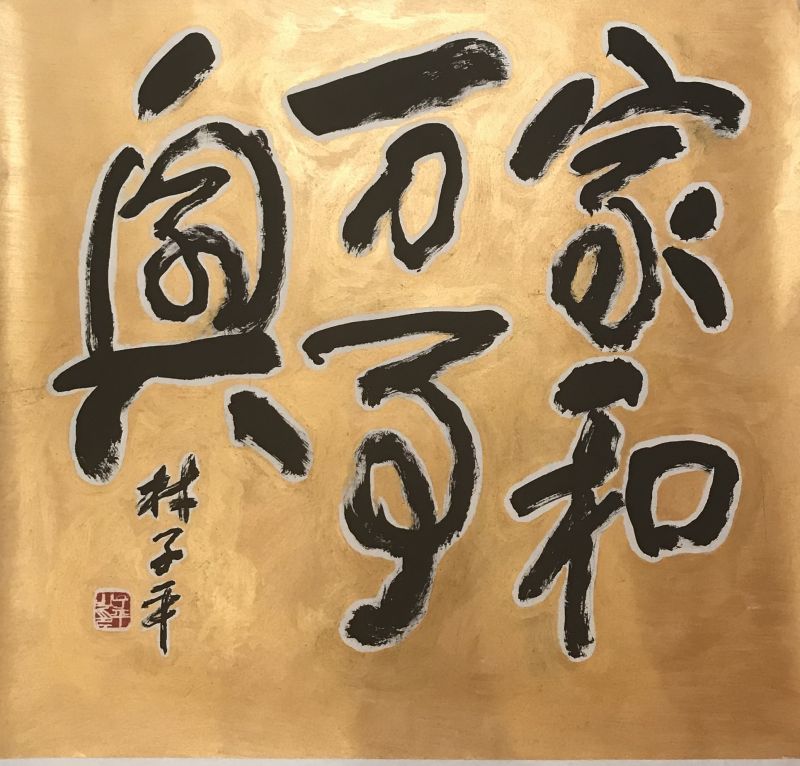 家和
万事
兴
林子平